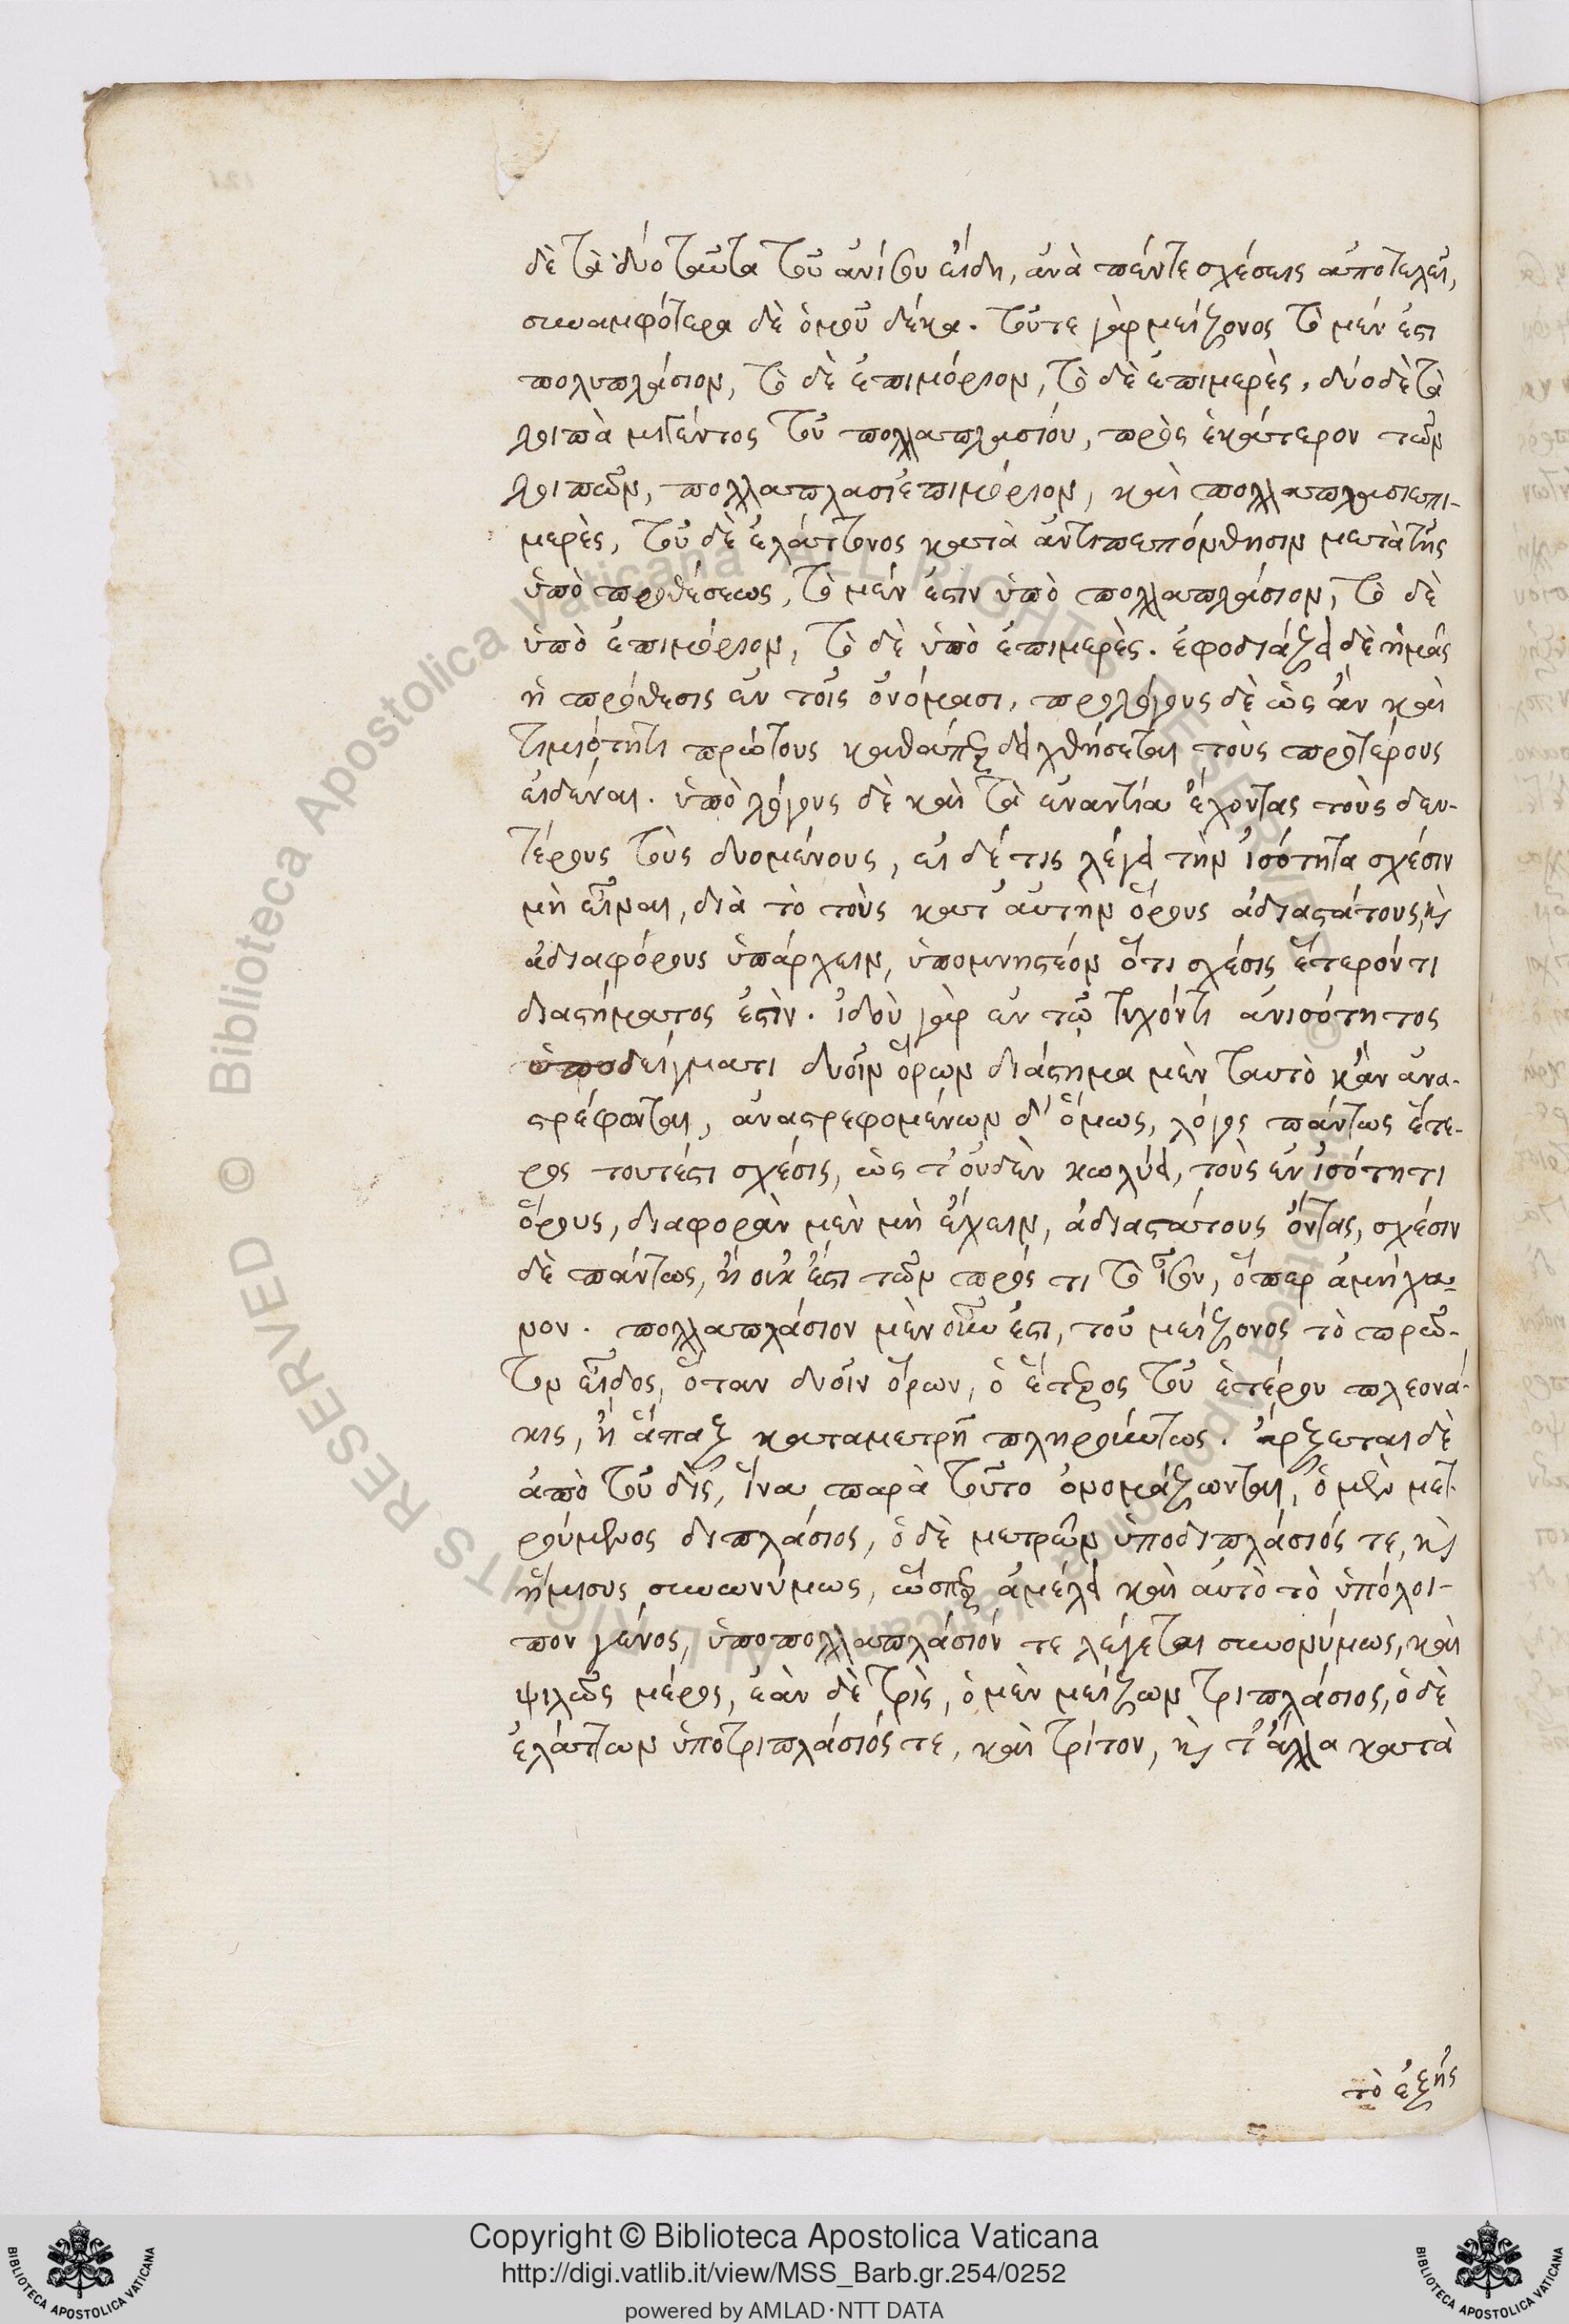 δὲ τὰ δύο ταῦτα τοῦ ἀνίσου εἴδη, ἀνὰ πέντε σχέσεις ἀποτελεῖ,
συναμφότερα δὲ ὁμοῦ δέκα. τοῦτε γὰρ μείζονος τὸ μέν ἐστι
πολυπλάσιον, τὸ δὲ ἐπιμόριον, τὸ δὲ ἐπιμερὲς, δύο δὲ τὰ
λοιπὰ μιγέντος τοῦ πολλαπλασίου, πρὸς ἑκάτερον τῶν
λοιπῶν, πολλαπλασιεπιμόριον, καὶ πολλαπλασιεπι-
μερὲς, τοῦ δὲ ἐλάττονος κατὰ ἀντιπεπόνθησιν μετὰ τῆς
ὑπὸ προθέσεως, τὸ μέν ἐστιν ὑπὸ πολλαπλάσιον, τὸ δὲ
ὑπὸ ἐπιμόριον, τὸ δὲ ὑπὸ ἐπιμερὲς. ἐφοδιάζει δὲ ἡμᾶς
ἡ πρόθεσις ἐν τοῖς ὀνόμασι, προλόγους δὲ ὡς ἂν καὶ
τιμιότητι πρώτους καθάπερ δειχθήσεται τοὺς προτέρους
εἰδέναι. ὑπὸ λόγους δὲ καὶ τὰ ἐναντία ἔχοντας τοὺς δευ-
τέρους τοὺς δυομένους, εἰ δέ τις λέγει τὴν ἰσότητα σχέσιν
μὴ εἶναι, διὰ τὸ τοὺς κατ' αὐτὴν ὅρους ἀδιαστάτους, καὶ
ἀδιαφόρους ὑπάρχειν, ὑπομνηστέον ὅτι σχέσις ἕτερόν τι
διαστήματος ἐστὶν. ἰδοὺ γὰρ ἐν τῷ τυχόντι ἀνισότητος
ὑποδείγματι δυοῖν ὅρων διάστημα μὲν ταυτὸ κἂν ἀνα-
στρέφονται, ἀναστρεφομένων δ' ὅμως, λόγος πάντως ἕτε-
ρος τουτέστι σχέσις, ὡς τ' οὐδὲν κωλύει, τοὺς ἐν ἰσότητι
ὅρους, διαφορὰν μὲν μὴ ἔχειν, ἀδιαστάτους ὄντας, σχέσιν
δὲ πάντως, ἢ οὐκ ἔστι τῶν πρός τι τὸ ἴσον, ὅπερ ἀμήχα-
νον. πολλαπλάσιον μὲν οὖν ἐστι, τοῦ μείζονος τὸ πρῶ-
τον εἶδος, ὅταν δυοῖν ὅρων, ὁ ἕτερος τοῦ ἑτέρου πλεονά-
κις, ἢ ἅπαξ καταμετρῇ πληρούντως. ἄρξεται δὲ
ἀπὸ τοῦ δὶς, ἵνα παρὰ τοῦτο ὀνομάζωνται, ὁ μὲν μετ-
ρούμενος διπλάσιος, ὁ δὲ μετρῶν ὑποδιπλάσιός τε, καὶ
ἥμισυς συνωνύμως, ὥσπερ ἀμέλει καὶ αὐτὸ τὸ ὑπόλοι-
πον γένος, ὑποπολλαπλάσιόν τε λέγεται συνονύμως, καὶ
ψιλῶς μέρος, ἐὰν δὲ τρὶς, ὁ μὲν μείζων τριπλάσιος, ὁ δὲ
ἐλάττων ὑποτριπλάσιός τε, καὶ τρίτον, καὶ τ' ἄλλα κατὰ
τὸ ἑξῆς
Copyright © Biblioteca Apostolica Vaticana
http://digi.vatlib.it/view/MSS_Barb.gr.254/0252
powered by AMLAD·NTT DATA